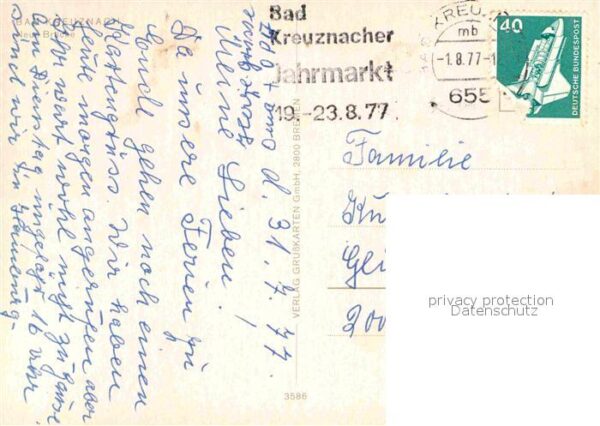 BAD KREUZNACH
Neue Brücke
d. 31. 7. 77.
Meine Lieben!
Da unsere Ferien zu
Ende gehen noch einen
Wir haben
heute morgen angerufen aber
Ihr wart wohl nicht zu Hause
am Dienstag ungefähr 16 Uhr
sind wir in
VERLAG GRUSSKARTEN GmbH, 2800 BREMEN
3586
Bad
Kreuznacher
Jahrmarkt
19.-23.8.77
BAD KREUZ
mb
-1.8.77-1
655
40
DEUTSCHE BUNDESPOST
Familie
privacy protection
Datenschutz